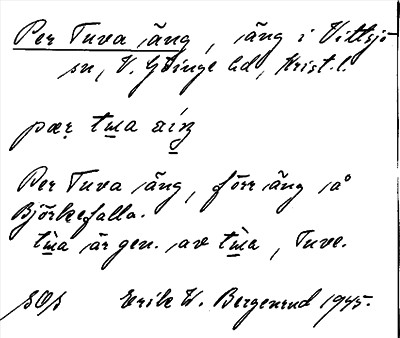 Per Tuva äng, äng i Vittsjö
sn, V. Göinge hd, Krist. l.
pær tɯa æiŋ
Per Tuva äng, förr äng å
Björkefalla.
tɯ̀a är gen. av tɯ̀a, Tuve.
SOS Erik W. Bergenrud 1945.